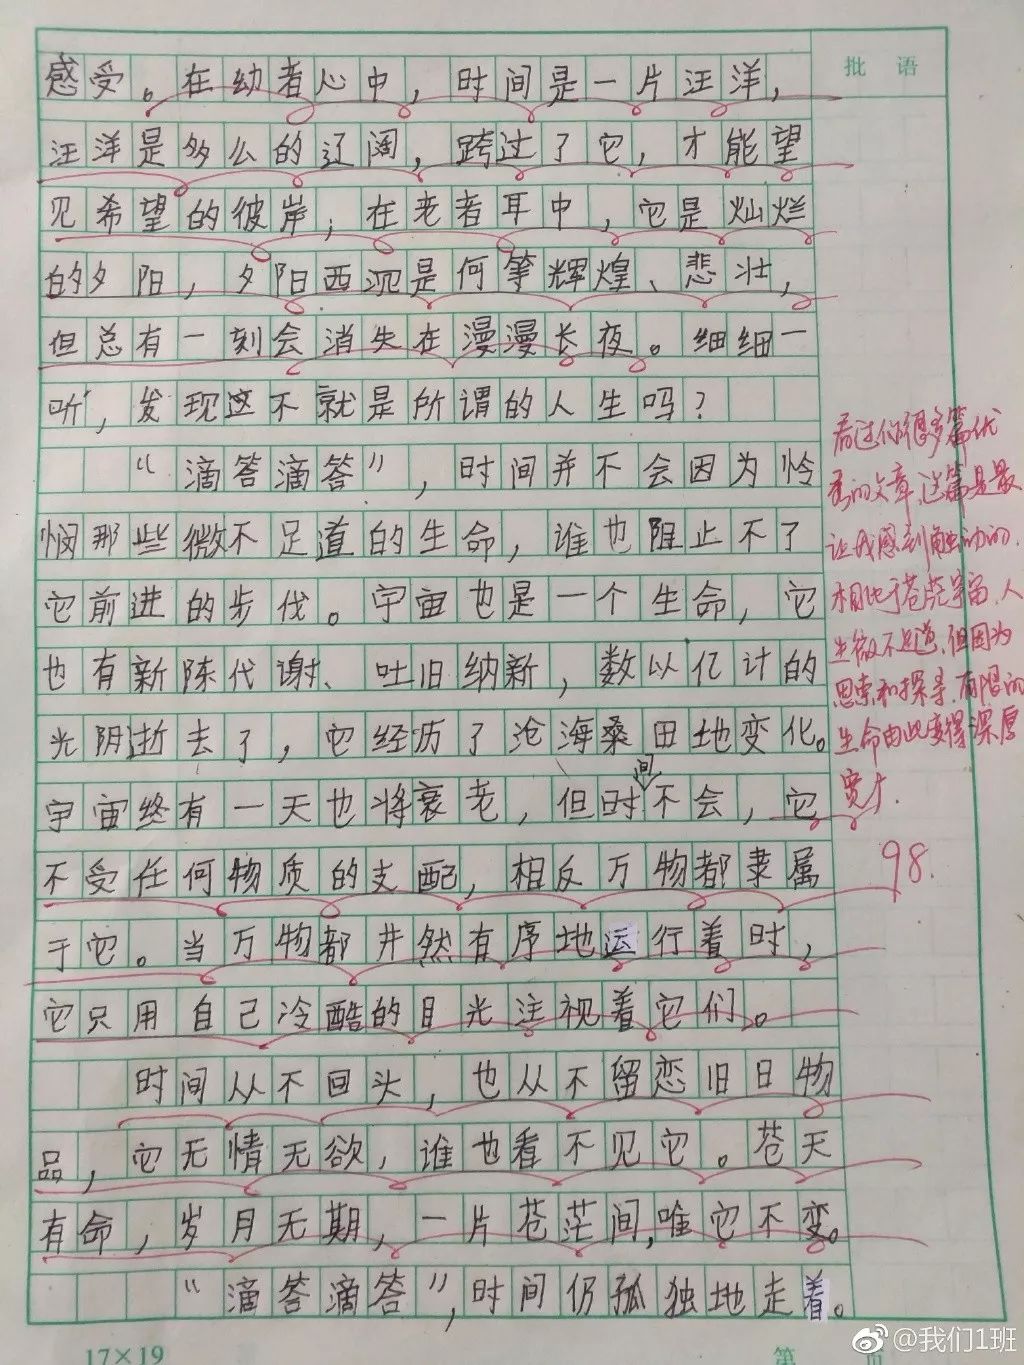 批 语
感受。在幼者心中，时间是一片汪洋，
汪洋是多么的辽阔，跨过了它，才能望
见希望的彼岸；在老者耳中，它是灿烂
的夕阳，夕阳西沉是何等辉煌、悲壮，
但总有一刻会消失在漫漫长夜。细细一
听，发现这不就是所谓的人生吗？
“滴答滴答”，时间并不会因为怜
悯那些微不足道的生命，谁也阻止不了
它前进的步伐。宇宙也是一个生命，它
也有新陈代谢、吐旧纳新，数以亿计的
光阴逝去了，它经历了沧海桑田地变化。
宇宙终有一天也将衰老，但时间不会，它
不受任何物质的支配，相反万物都隶属
于它。当万物都井然有序地运行着时，
它只用自己冷酷的目光注视着它们。
时间从不回头，也从不留恋旧日物
品，它无情无欲，谁也看不见它。苍天
有命，岁月无期，一片苍茫间，唯它不变。
“滴答滴答”，时间仍孤独地走着。
看过你很多篇优
秀的文章，这篇是最
让我感到触动的。
相比于苍茫宇宙，人
生微不足道，但因为
思索和探寻，有限的
生命由此变得深厚
宽广。
98.
17×19
第 页
@我们1班